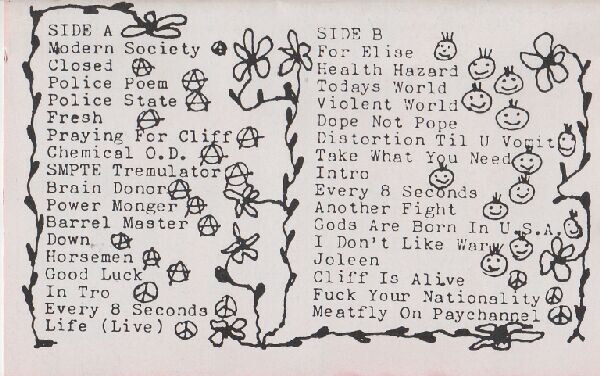 SIDE A
Modern Society
Closed
Police Poem
Police State
Fresh
Praying For Cliff
Chemical O.D.
SMPTE Tremulator
Brain Donor
Power Monger
Barrel Master
Down
Horsemen
Good Luck
In Tro
Every 8 Seconds
Life (Live)
SIDE B
For Elise
Health Hazard
Todays World
Violent World
Dope Not Pope
Distortion Til U Vomit
Take What You Need
Intro
Every 8 Seconds
Another Fight
Gods Are Born In U.S.A.
I Don't Like War
Joleen
Cliff Is Alive
Fuck Your Nationality
Meatfly On Paychannel